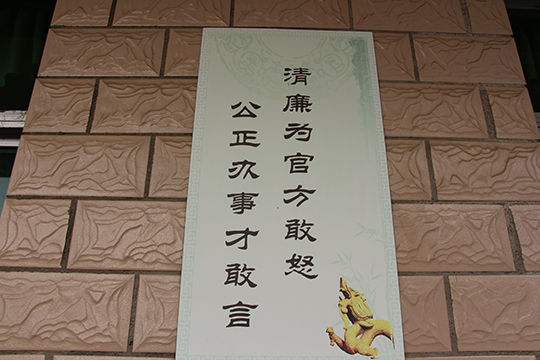 清廉为官方敢怒
公正办事才敢言